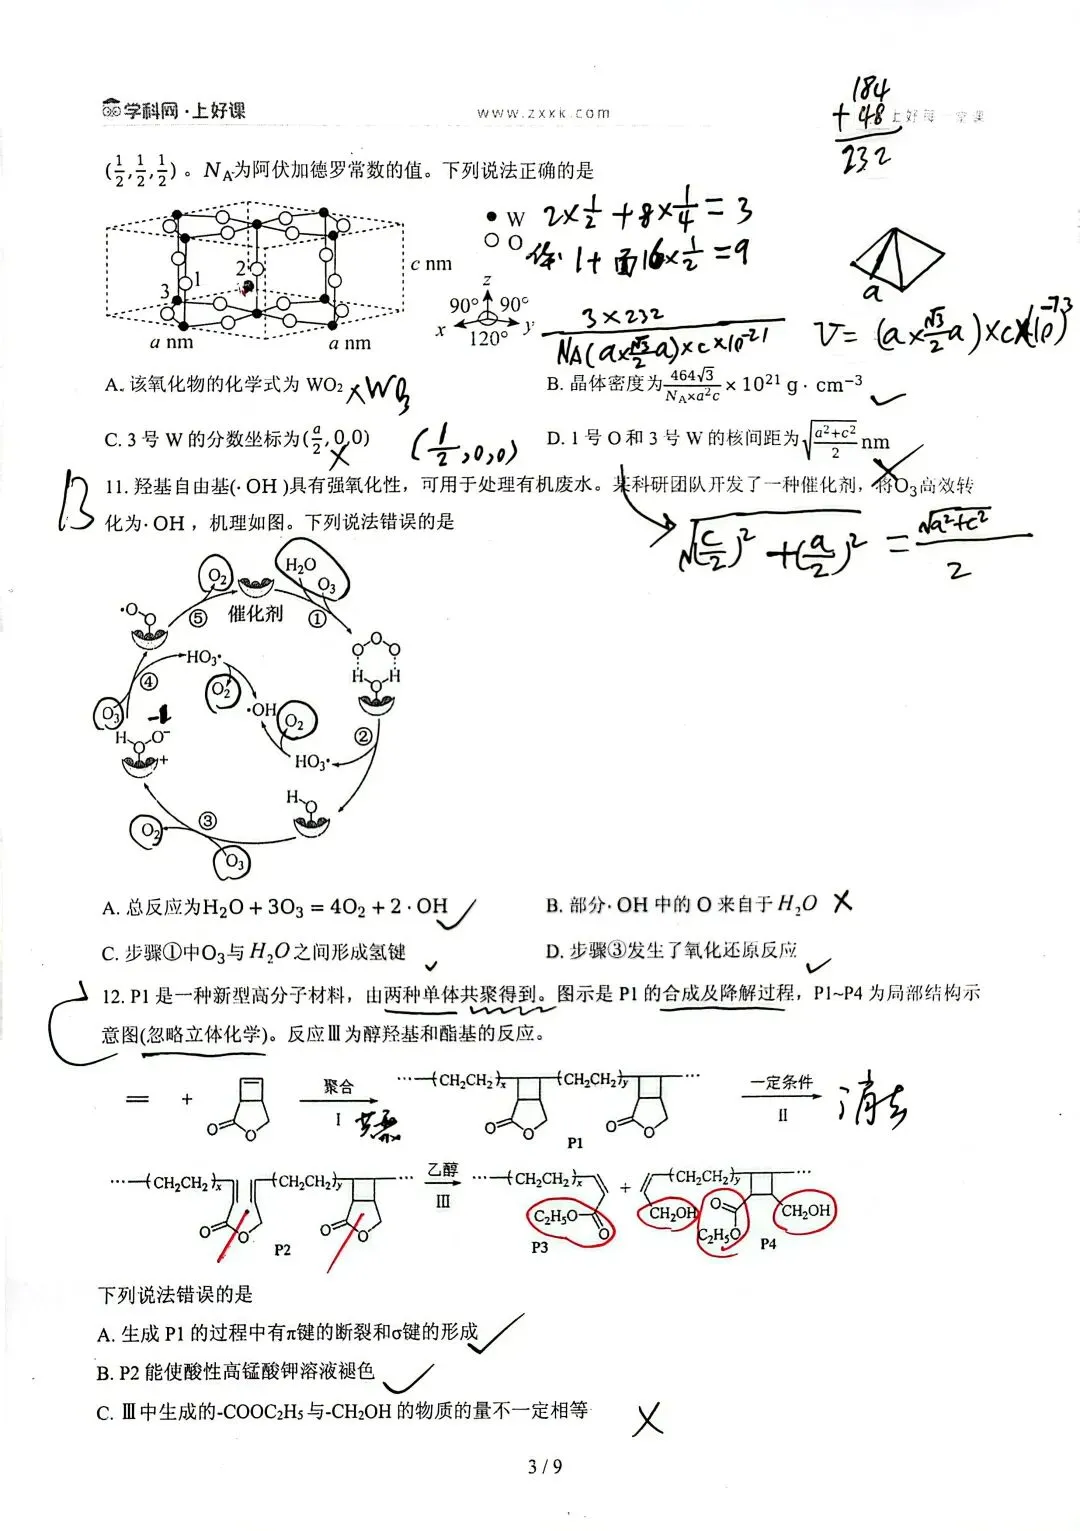 学科网·上好课 www.zxxk.com 上好每一堂课
184
+ 48
232
(1/2,1/2,1/2)。N_A为阿伏加德罗常数的值。下列说法正确的是
● W 2×1/2+8×1/4=3
○ O 体:1+面16×1/2=9
1 2 3
c nm
a nm a nm
z
90° 90°
x y
120°
a
3×232/N_A(a×√3/2a)×c×10^-21
V=(a×√3/2a)×c×(10^-7)^3
A. 该氧化物的化学式为 WO₂ ×WO₃
B. 晶体密度为464√3/(N_A×a²c)×10²¹ g·cm⁻³ ✓
C. 3 号 W 的分数坐标为(a/2,0,0) × (1/2,0,0)
D. 1 号 O 和 3 号 W 的核间距为√((a²+c²)/2) nm ×
B 11. 羟基自由基(·OH)具有强氧化性，可用于处理有机废水。某科研团队开发了一种催化剂，将O₃高效转
化为·OH，机理如图。下列说法错误的是
√((c/2)²+(a/2)²)=√(a²+c²)/2
O₂ H₂O O₃
·O O ⑤ 催化剂 ①
O O O
H H
O
HO₃·
④ O₂
O₃ -1 ·OH O₂
H O O⁻ ②
+ HO₃·
H O
③
O₂
O₃
A. 总反应为H₂O + 3O₃ = 4O₂ + 2·OH ✓
B. 部分·OH 中的 O 来自于H₂O ×
C. 步骤①中O₃与H₂O之间形成氢键 ✓
D. 步骤③发生了氧化还原反应 ✓
C 12. P1 是一种新型高分子材料，由两种单体共聚得到。图示是 P1 的合成及降解过程，P1~P4 为局部结构示
意图(忽略立体化学)。反应Ⅲ为醇羟基和酯基的反应。
= + O O 聚合 Ⅰ 共聚 ···(CH₂CH₂)x (CH₂CH₂)y··· O O O O P1 一定条件 Ⅱ 消去
···(CH₂CH₂)x (CH₂CH₂)y··· O O O O P2 乙醇 Ⅲ ···(CH₂CH₂)x C₂H₅O O P3 + (CH₂CH₂)y··· CH₂OH O C₂H₅O CH₂OH P4
下列说法错误的是
A. 生成 P1 的过程中有π键的断裂和σ键的形成 ✓
B. P2 能使酸性高锰酸钾溶液褪色 ✓
C. Ⅲ中生成的-COOC₂H₅与-CH₂OH 的物质的量不一定相等 ×
3 / 9